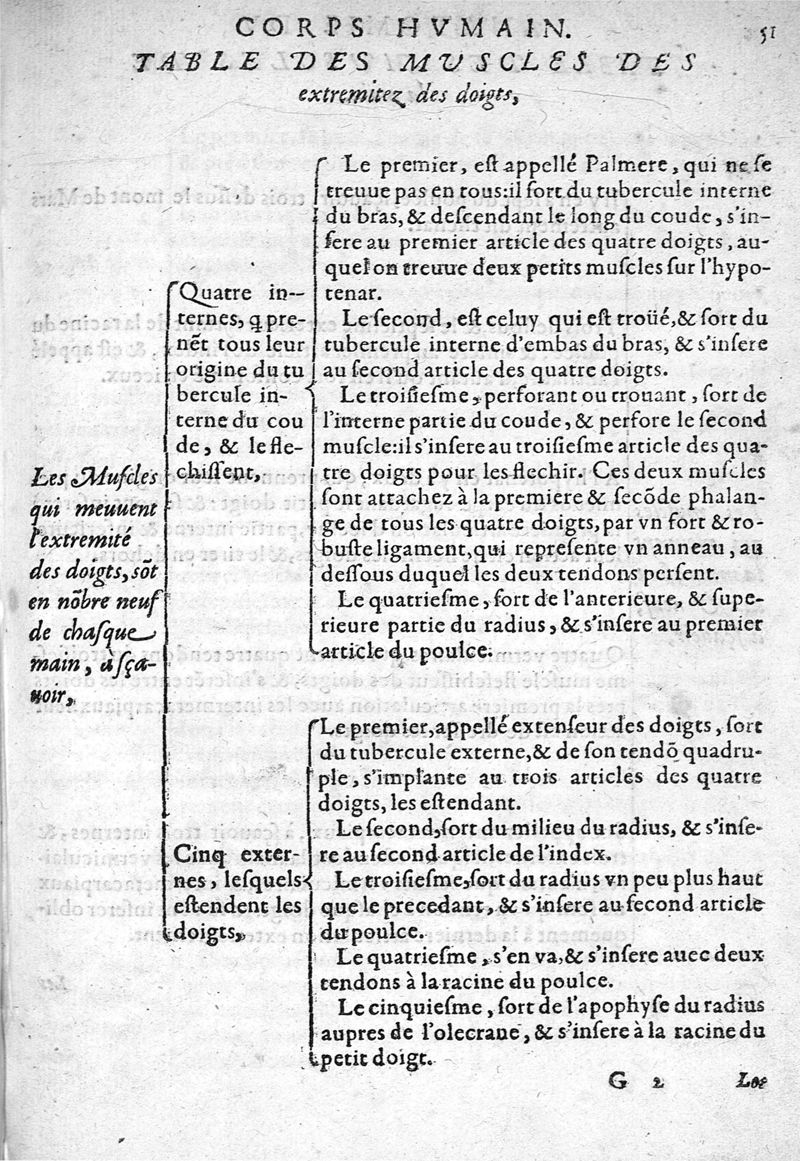 CORPS HVMAIN. 51
TABLE DES MUSCLES DES
extremitez des doigts,
Les Muſcles
qui meuuent
l'extremité
des doigts, sõt
en nõbre neuf
de chaſque
main, aſça-
uoir,
Quatre in--
ternes, q pre-
nẽt tous leur
origine du tu
bercule in-
terne du cou
de, & le fle-
chiſſent,
Le premier, eſt appellé Palmere, qui ne ſe
treuue pas en tous: il ſort du tubercule interne
du bras, & deſcendant le long du coude, s'in-
ſere au premier article des quatre doigts, au-
quel on treuue deux petits muſcles ſur l'hypo-
tenar.
Le ſecond, eſt celuy qui eſt troüé, & ſort du
tubercule interne d'embas du bras, & s'inſere
au ſecond article des quatre doigts.
Le troiſieſme, perforant ou trouant, ſort de
l'interne partie du coude, & perfore le ſecond
muſcle: il s'inſere au troiſieſme article des qua-
tre doigts pour les flechir. Ces deux muſcles
ſont attachez à la premiere & ſecõde phalan-
ge de tous les quatre doigts, par vn fort & ro-
buſte ligament, qui repreſente vn anneau, au
deſſous duquel les deux tendons perſent.
Le quatrieſme, ſort de l'anterieure, & ſupe-
rieure partie du radius, & s'inſere au premier
article du poulce.
Cinq exter-
nes, leſquels
eſtendent les
doigts,
Le premier, appellé extenſeur des doigts, ſort
du tubercule externe, & de ſon tendõ quadru-
ple, s'implante au trois articles des quatre
doigts, les eſtendant.
Le ſecond, ſort du milieu du radius, & s'inſe-
re au ſecond article de l'index.
Le troiſieſme, ſort du radius vn peu plus haut
que le precedant, & s'inſere au ſecond article
du poulce.
Le quatrieſme, s'en va, & s'inſere auec deux
tendons à la racine du poulce.
Le cinquieſme, ſort de l'apophyſe du radius
aupres de l'olecrane, & s'inſere à la racine du
petit doigt.
G 2 Les